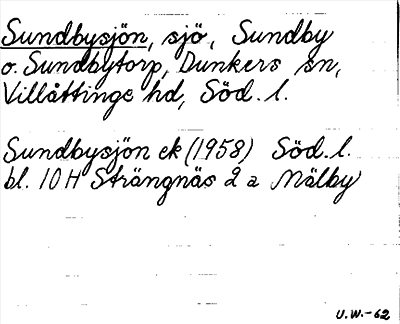 Sundbysjön, sjö, Sundby
o. Sundbytorp, Dunkers sn,
Villåttinge hd, Söd. l.
Sundbysjön ek (1958) Söd. l.
bl. 10 H Strängnäs 2 a Mälby
U.W.-62